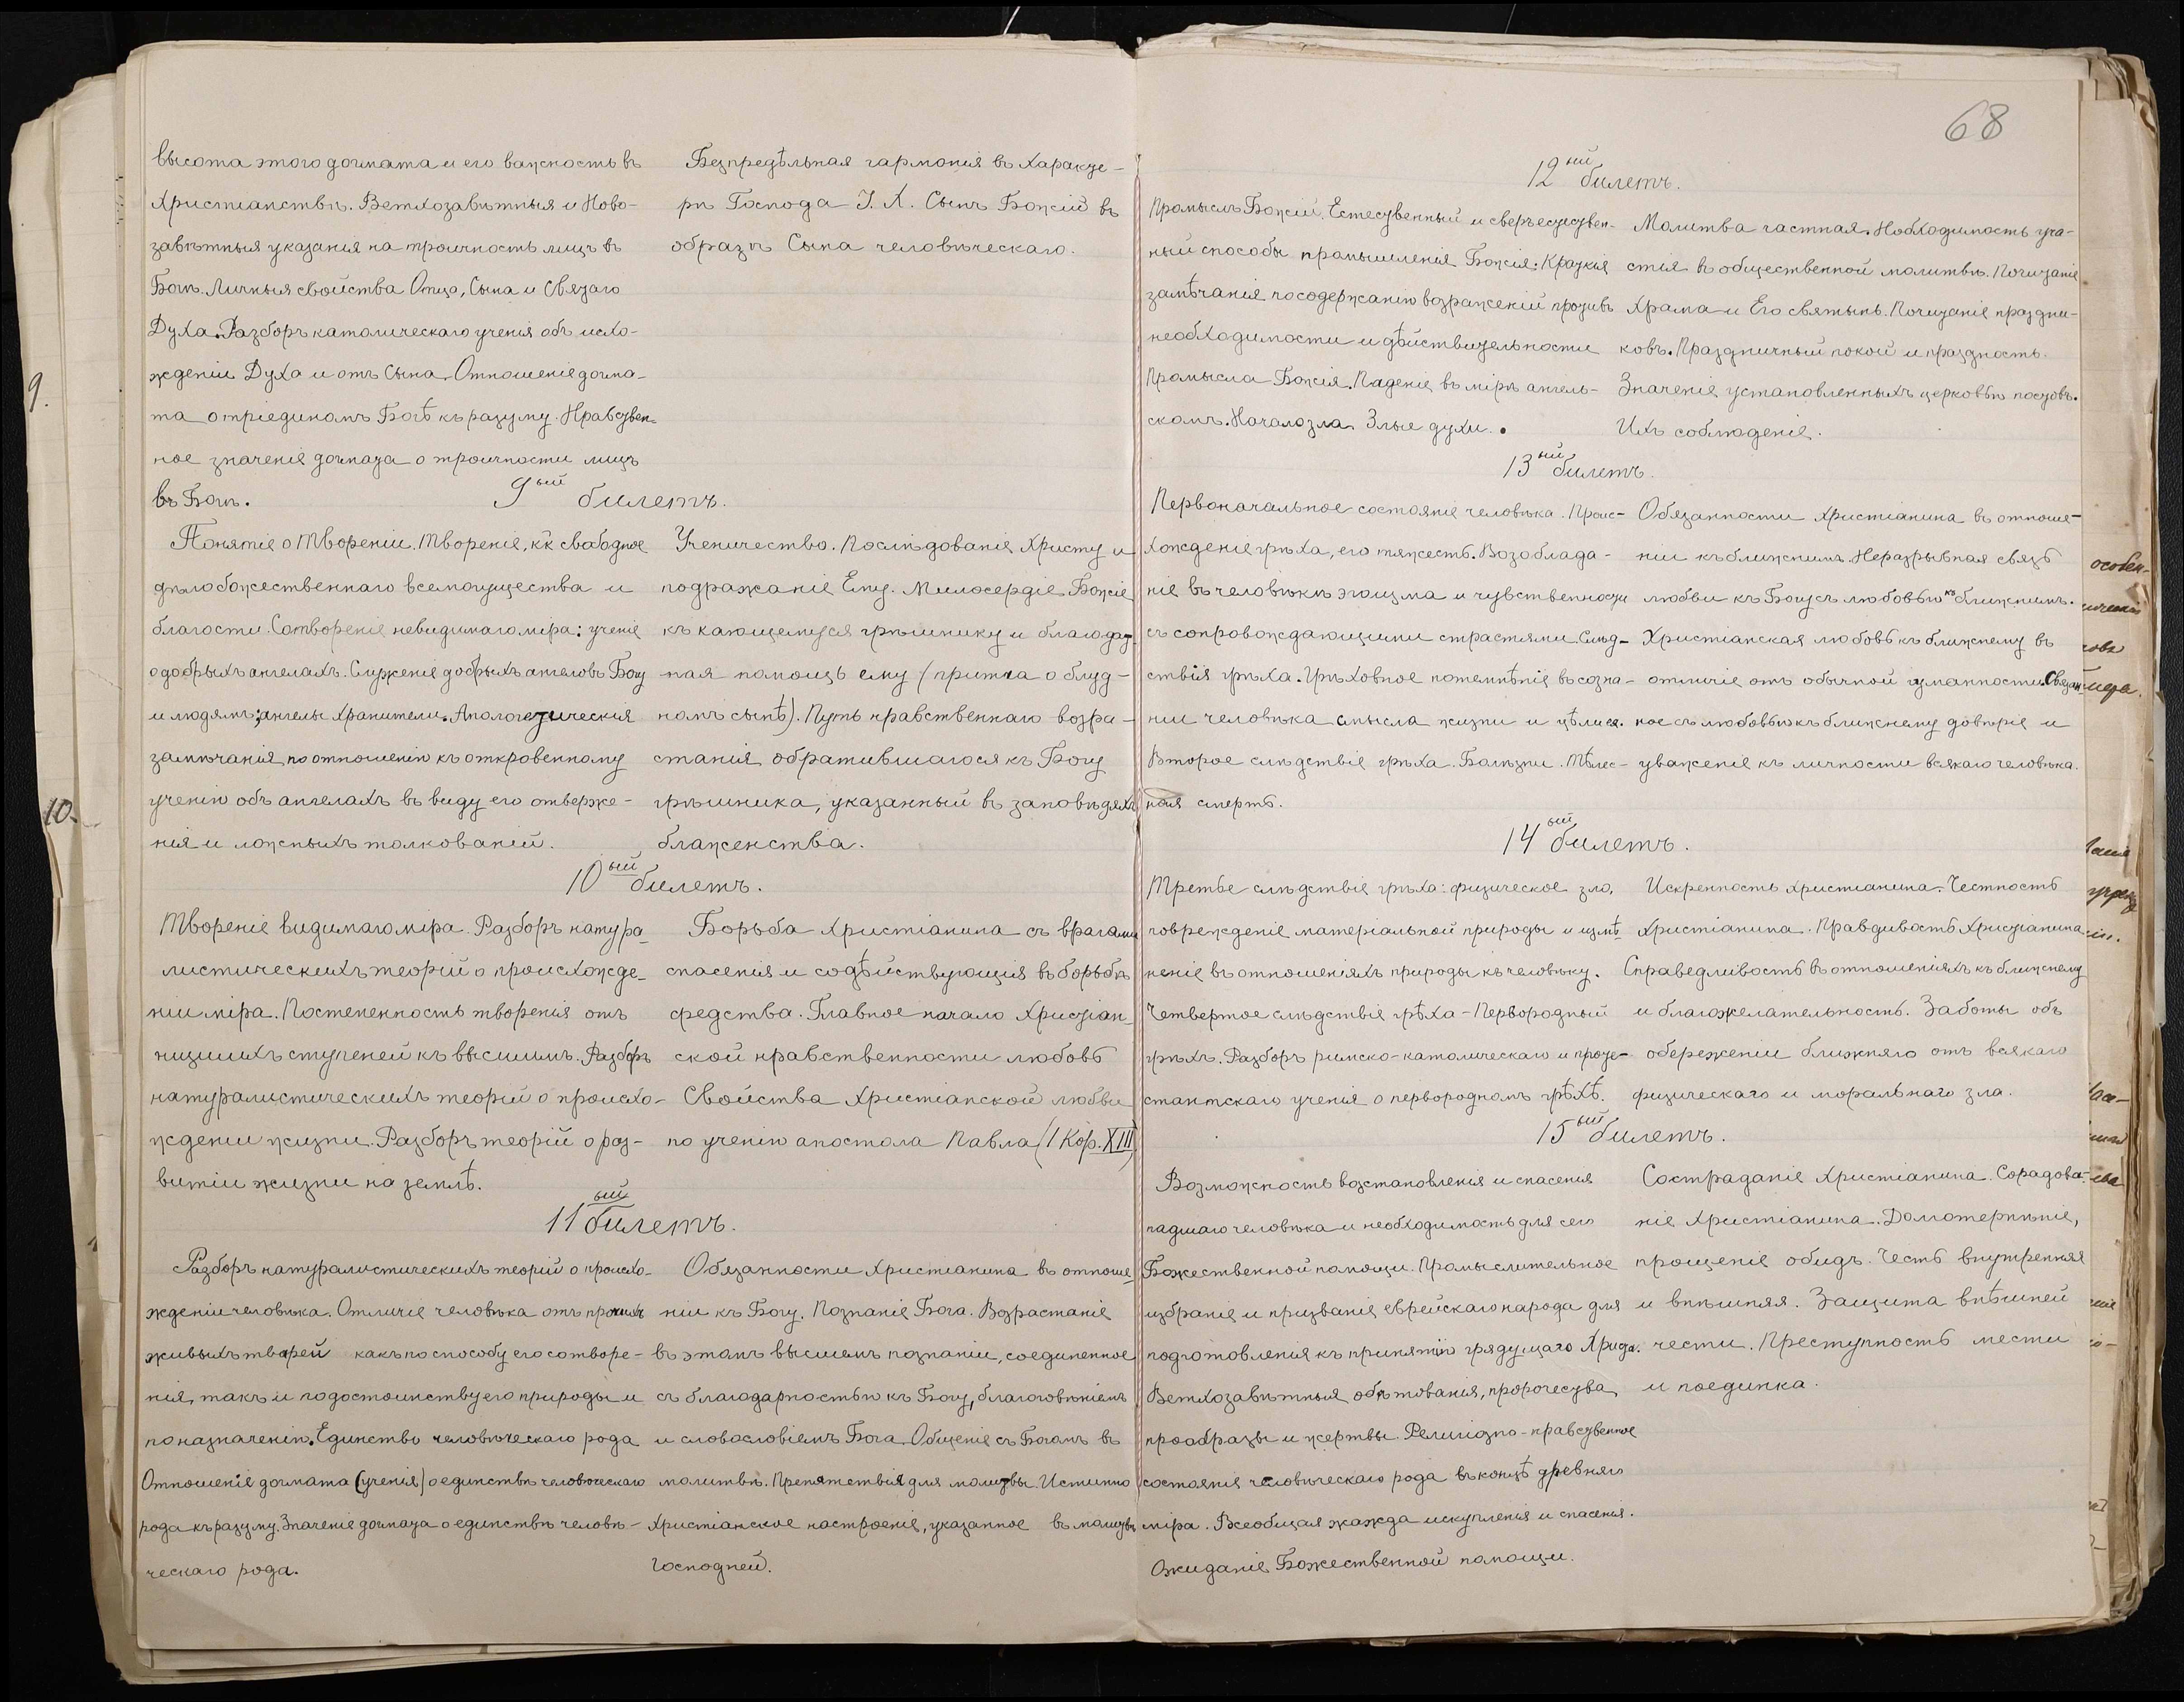 высота этого догмата и его важность въ
Христіанствѣ. Ветхозавѣтныя и Ново-
завѣтныя указанія на троичность лицъ въ
Богѣ. Личныя свойства Отца, Сына и Святаго
Духа. Разборъ католическаго ученія объ исхо-
жденіи Духа и отъ Сына. Отношеніе догма-
та о тріединомъ Богѣ къ разуму. Нравствен-
ное значеніе догмата о троичности лицъ
въ Богѣ.
Безпредѣльная гармонія въ характе-
рѣ Господа І. Х. Сынъ Божій въ
образѣ Сына человѣческаго.
9ый билетъ.
Понятіе о Твореніи. Твореніе, кк свободное
дѣло божественнаго всемогущества и
благости. Сотвореніе невидимаго міра: ученіе
о добрыхъ ангелахъ. Служеніе добрыхъ ангеловъ Богу
и людямъ; ангелы Хранители. Апологетическія
замѣчанія по отношенію къ откровенному
ученію объ ангелахъ въ виду его отверже-
нія и ложныхъ толкованій.
Ученичество. Послѣдованіе Христу и
подражаніе Ему. Милосердіе Божіе
къ кающемуся грѣшнику и благодат-
ная помощь ему (притча о блуд-
номъ сынѣ). Путь нравственнаго возра-
станія обратившагося къ Богу
грѣшника, указанный въ заповѣдяхъ
блаженства.
10ый билетъ.
Твореніе видимаго міра. Разборъ натура-
листическихъ теорій о происхожде-
ніи міра. Постепенность творенія отъ
низшихъ ступеней къ высшимъ. Разборъ
натуралистическихъ теорій о происхо-
жденіи жизни. Разборъ теорій о раз-
витіи жизни на землѣ.
Борьба Христіанина съ врагами
спасенія и содѣйствующія въ борьбѣ
средства. Главное начало Христіан-
ской нравственности любовь
Свойства Христіанской любви
по ученію апостола Павла (1 Кор. XIII)
11ый билетъ.
Разборъ натуралистическихъ теорій о происхо-
жденіи человѣка. Отличіе человѣка отъ прочихъ
живыхъ тварей какъ по способу его сотворе-
нія, такъ и по достоинству его природы и
по назначенію. Единство человѣческаго рода
Отношеніе догмата (ученія) о единствѣ человѣческаго
рода къ разуму. Значеніе догмата о единствѣ человѣ-
ческаго рода.
Обязанности Христіанина въ отноше-
ніи къ Богу. Познаніе Бога. Возрастаніе
въ этомъ высшемъ познаніи, соединенное
съ благодарностью къ Богу, благоговѣніемъ
и словословіемъ Бога. Общеніе съ Богомъ въ
молитвѣ. Препятствія для молитвы. Истинно
Христіанское настроеніе, указанное въ молитвѣ
Господней.
9.
10.
68
12ый билетъ.
Промыслъ Божій. Естественный и сверхъестествен-
ный способы промышленія Божія. Краткія
замѣчанія по содержанію возраженій противъ
необходимости и дѣйствительности
Промысла Божія. Паденіе въ мірѣ ангель-
скомъ. Начало зла. Злые духи.
Молитва частная. Необходимость уча-
стія въ общественной молитвѣ. Почитаніе
Храма и Его святынь. Почитаніе праздни-
ковъ. Праздничный покой и праздность.
Значеніе установленныхъ церковью постовъ.
Ихъ соблюденіе.
13ый билетъ.
Первоначальное состояніе человѣка. Проис-
хожденіе грѣха, его тяжесть. Возоблада-
ніе въ человѣкѣ эгоизма и чувственности
съ сопровождающими страстями. Слѣд-
ствія грѣха. Грѣховное потемнѣніе въ созна-
ніи человѣка смысла жизни и цѣли ея.
Второе слѣдствіе грѣха. Болѣзни. Тѣлес-
ная смерть.
Обязанности Христіанина въ отноше-
ніи къ ближнимъ. Неразрывная связь
любви къ Богу съ любовью къ ближнимъ.
Христіанская любовь къ ближнему въ
отличіе отъ обычной гуманности. Связан-
ное съ любовью къ ближнему довѣріе и
уваженіе къ личности всякаго человѣка.
14ый билетъ.
Третье слѣдствіе грѣха: физическое зло,
поврежденіе матеріальной природы и измѣ-
неніе въ отношеніяхъ природы къ человѣку.
Четвертое слѣдствіе грѣха - Первородный
грѣхъ. Разборъ римско-католическаго и проте-
стантскаго ученія о первородномъ грѣхѣ.
Искренность Христіанина. Честность
Христіанина. Правдивость Христіанина
Справедливость въ отношеніяхъ къ ближнему
и благожелательность. Заботы объ
обереженіи ближняго отъ всякаго
физическаго и моральнаго зла.
15ый билетъ.
Возможность возстановленія и спасенія
падшаго человѣка и необходимость для сего
Божественной помощи. Промыслительное
избраніе и призваніе еврейскаго народа для
подготовленія къ принятію грядущаго Христа.
Ветхозавѣтныя обѣтованія, пророчества,
прообразы и жертвы. Религіозно-нравственное
состояніе человѣческаго рода въ концѣ древняго
міра. Всеобщая жажда искупленія и спасенія.
Ожиданіе Божественной помощи.
Состраданіе Христіанина. Сорадова-
ніе Христіанина. Долготерпѣніе,
прощеніе обидъ. Честь внутренняя
и внѣшняя. Защита внѣшней
чести. Преступность мести
и поединка.
особен-